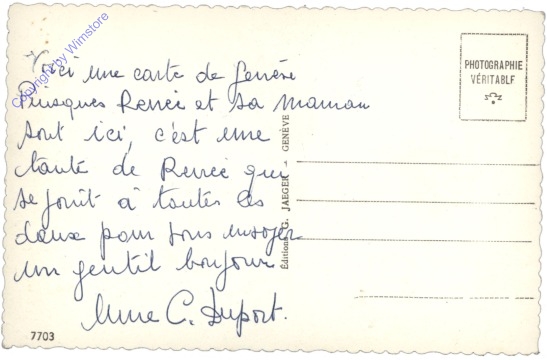 Voici une carte de Genève
Puisques Renée et sa maman
sont ici, c'est une
tante de Renée qui
se joint à toutes les
deux pour vous envoyer
un gentil bonjour
Mme C. Duport.
7703
Éditions G. JAEGER - GENÈVE
PHOTOGRAPHIE
VÉRITABLE
Copyright by Wimstore